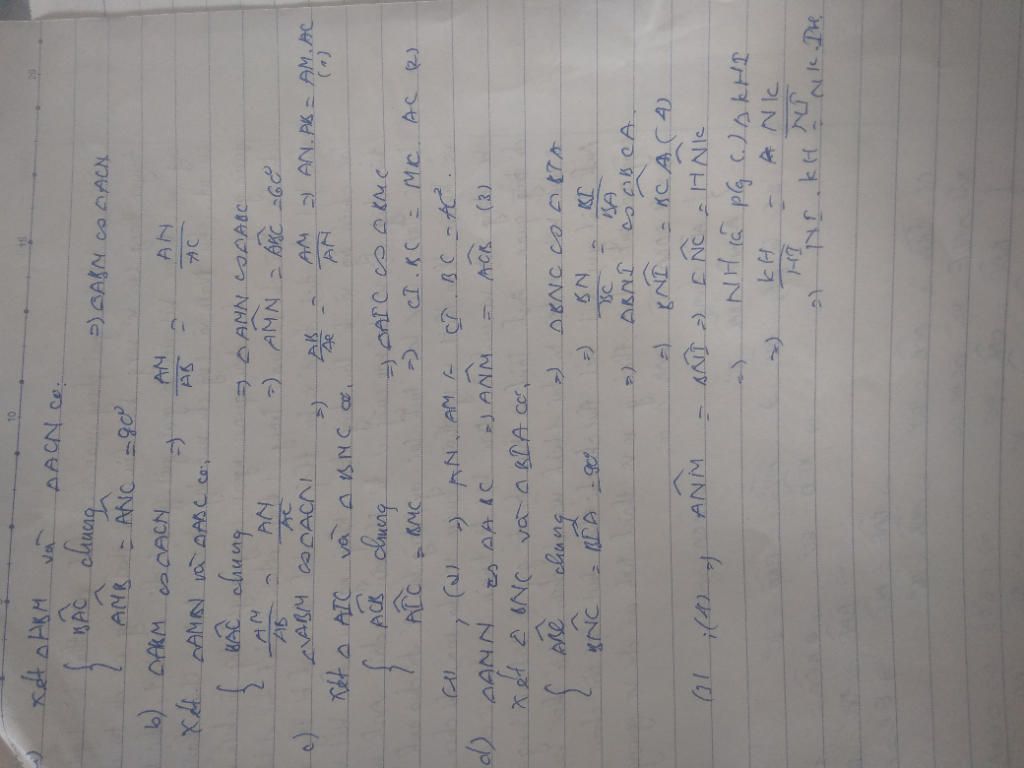 a) Xét ΔABM và ΔACN có:
{ BÂC chung
AM̂B = AN̂C = 90° => ΔABM ∽ ΔACN
b) ΔABM ∽ ΔACN => AM/AB = AN/AC
Xét ΔAMN và ΔABC có:
{ BÂC chung
AM/AB = AN/AC => ΔAMN ∽ ΔABC
=> AM̂N = AB̂C = 60°
c) ΔABM ∽ ΔACN => AB/AC = AM/AN => AN.AB = AM.AC (1)
Xét ΔAIC và ΔBMC có:
{ AĈB chung
AÎC = BMC => ΔAIC ∽ ΔBMC
=> CI.BC = MC.AC (2)
(1), (2) => AN.AB + CI.BC = AC².
d) ΔAMN ∽ ΔABC => AN̂M = AĈB (3)
Xét ΔBNC và ΔBIA có:
{ AB̂C chung
BN̂C = BÎA = 90° => ΔBNC ∽ ΔBIA
=> BN/BC = BI/BA
=> ΔBNI ∽ ΔBCA.
=> BN̂I = BCA (4)
(3), (4) => AN̂M = BN̂I => CN̂I = HN̂K
=> NH là pg ΔKHI
=> KH/HI = NK/NI
=> NI.KH = NK.IH